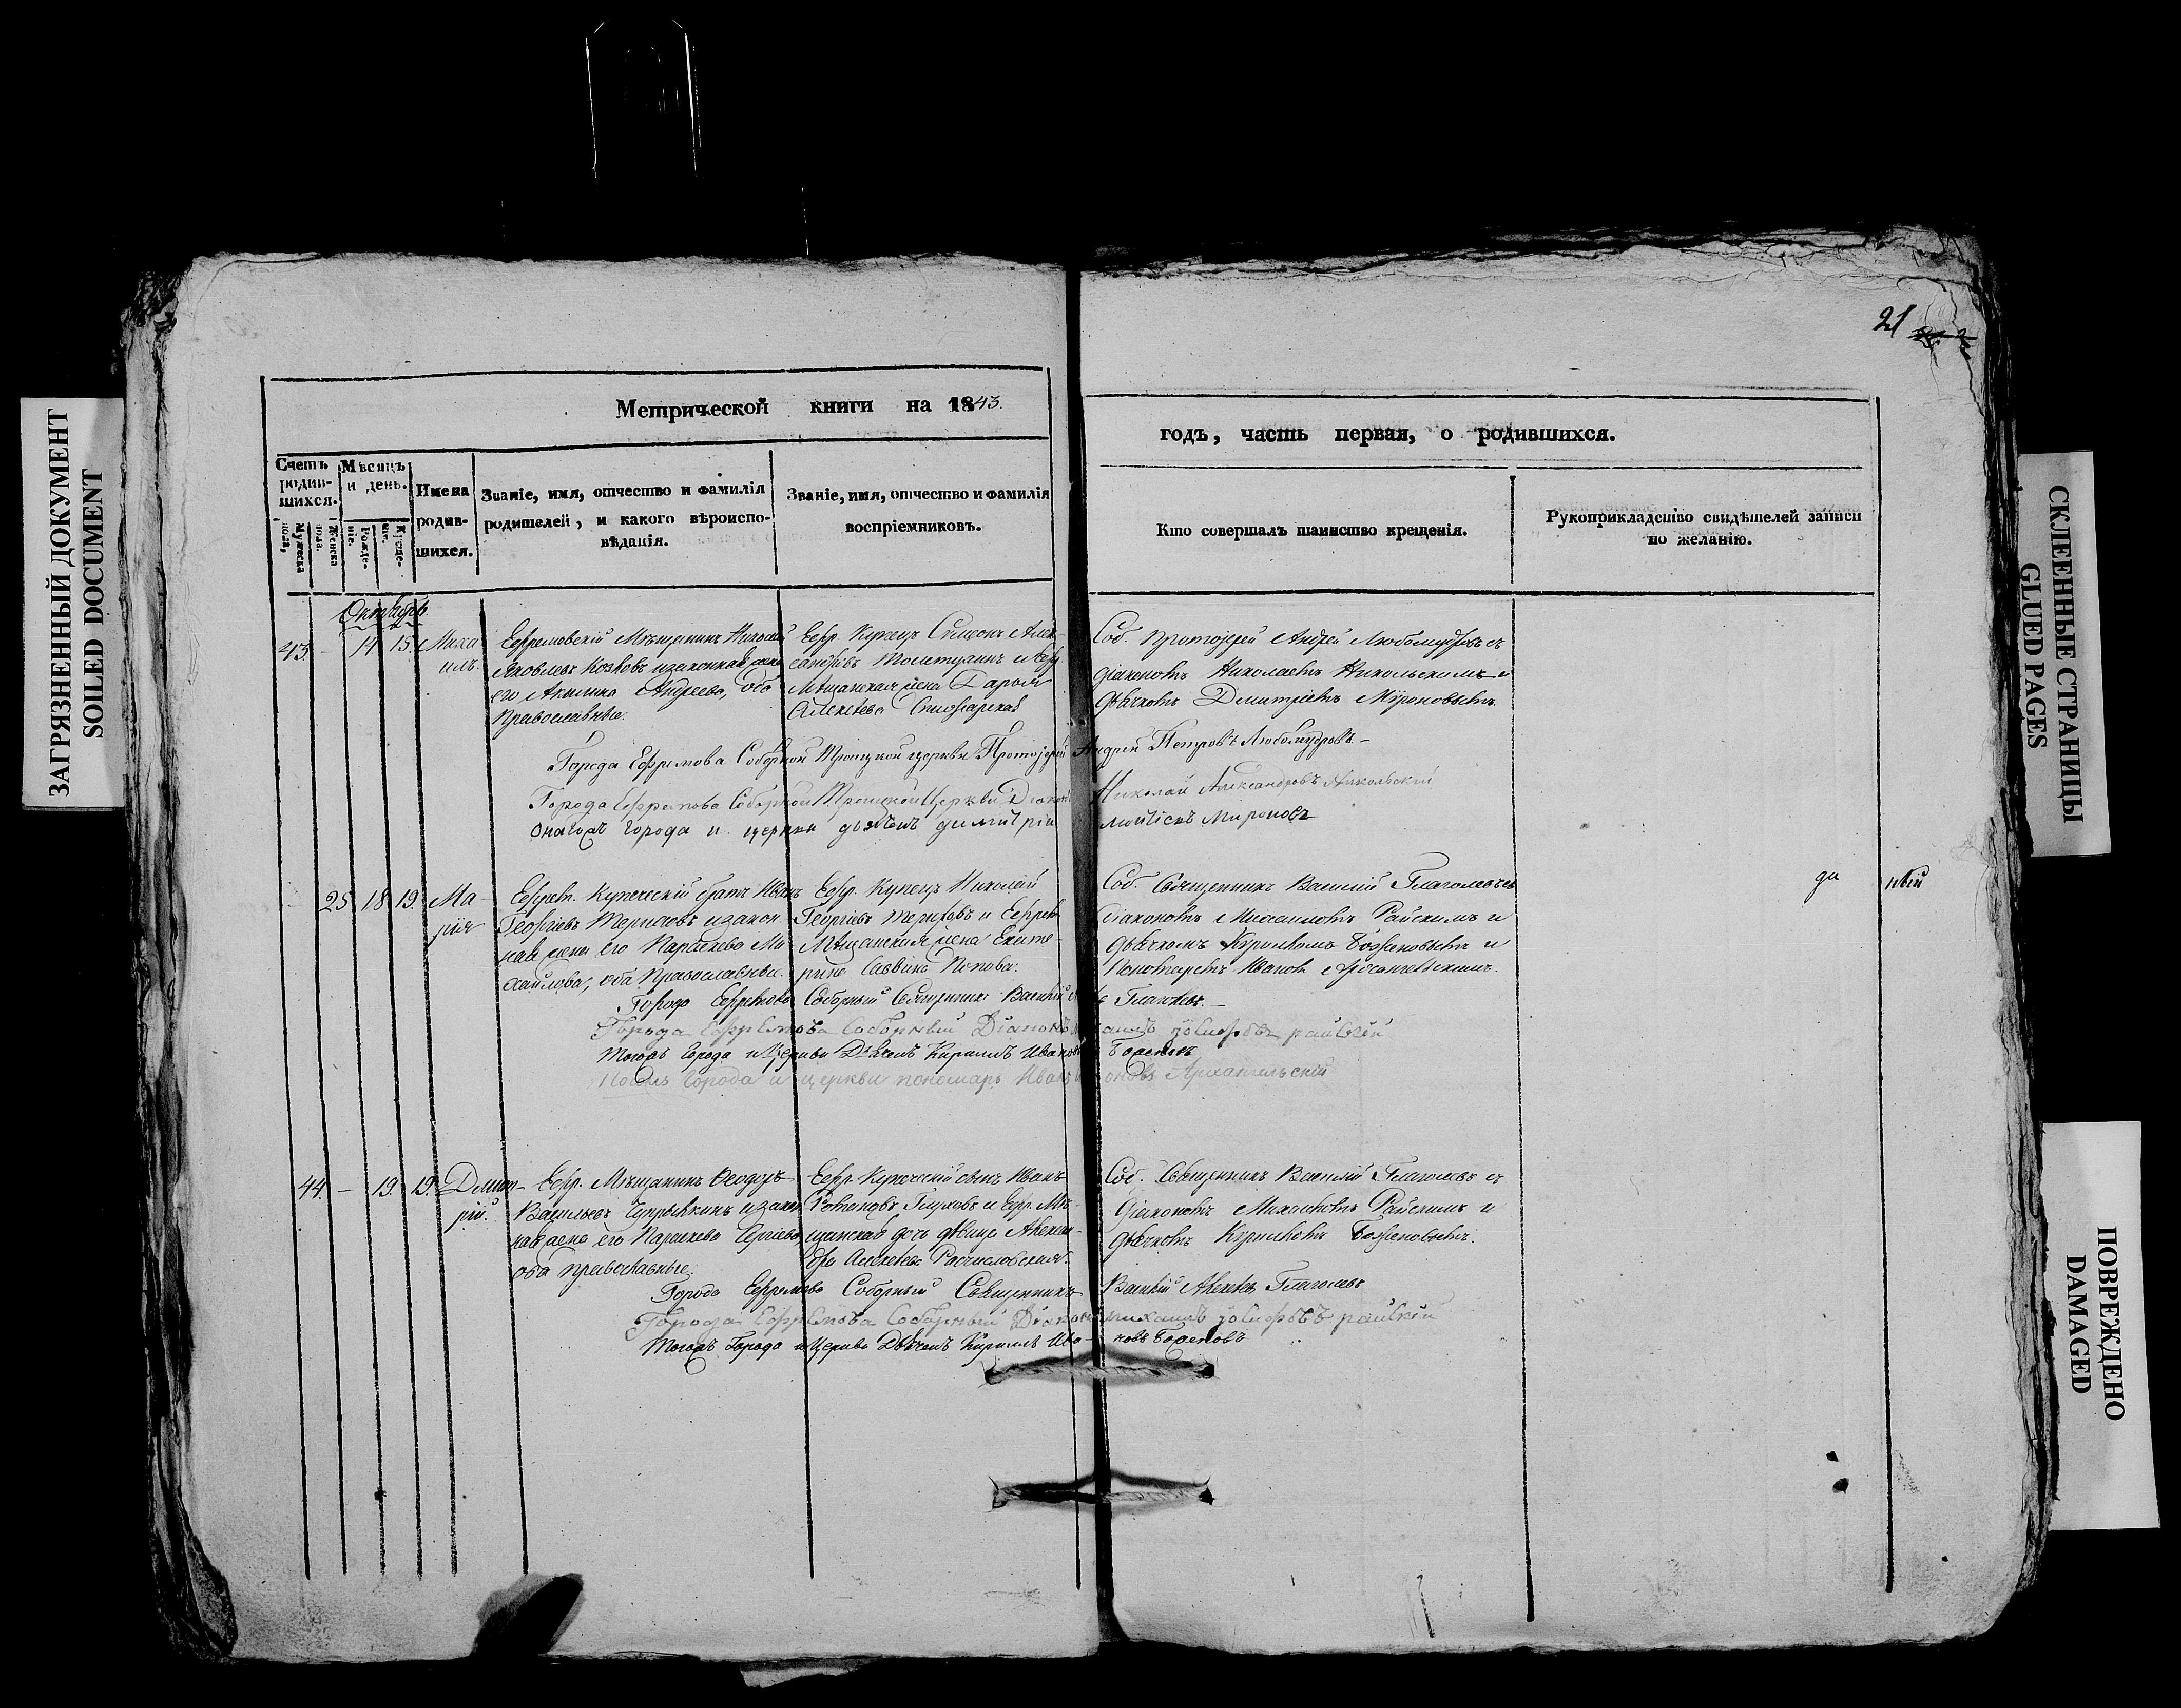 ЗАГРЯЗНЕННЫЙ ДОКУМЕНТ
SOILED DOCUMENT
СКЛЕЕННЫЕ СТРАНИЦЫ
GLUED PAGES
ПОВРЕЖДЕНО
DAMAGED
21
Метрической книги на 1843.
годъ, часть первая, о родившихся.
Счетъ родив-шихся.
Мужеска пола,
Женска пола.
Мѣсяцъ и день.
Рожде-ніе.
Креще-ніе.
Имена родив-шихся.
Званіе, имя, отчество и фамилія
родителей, и какого вѣроиспо-
вѣданія.
Званіе, имя, отчество и фамилія
воспріемниковъ.
Кто совершалъ таинство крещенія.
Рукоприкладство свидѣтелей записи
по желанію.
Октябрь
43. - 14 15. Миха
илъ.
Ефремовскій Мѣщанинъ Николай
Яковлевъ Козловъ и законная жена
его Акилина Андреева, оба
Православные.
Ефр. Купецъ Симеонъ Алек-
сандровъ и Ефр
Мѣщанская жена Дарья
Алексѣева
Соб. протоіерей Андрей Любомудровъ съ
діакономъ Николаемъ Никольскимъ и
дьячкомъ Димитріемъ Мироновымъ.
Города Ефремова Соборной Троицкой церкви Протоіерей Андрей Петровъ Любомудровъ.-
Города Ефремова Соборной Троицкой Церкви Діаконъ Николай Александровъ Никольскій
города и церкви дьячекъ димитрій Мироновъ
25 18 19. Ма-
рія
Ефрем. Купеческій братъ Иванъ
Георгіевъ и закон-
ная жена его Параскева Ми-
хайлова, оба Православные.
Ефр. Купецъ Николай
Георгіевъ и Ефрем.
Мѣщанская жена Екате-
рина Саввина Попова.
Соб. Священникъ Василій Глаголевъ съ
діакономъ Михаиломъ Райскимъ и
дьячкомъ Кирилломъ Боженовымъ и
Пономаремъ Иваномъ Архангельскимъ.
да
ный
Города Ефремова Соборный Священникъ Василій Глаголевъ.-
Города Ефремова Соборный Діаконъ Михаилъ іосифовъ райскій
Тогожъ Города и Церкви Дьячекъ Кириллъ Ивановъ Боженовъ
Города и церкви пономарь Иванъ Архангельскій
44. - 19. 19. Димит-
рій.
Ефр. Мѣщанинъ Ѳеодоръ
Васильевъ и закон
ная жена его Параскева Сергіева,
оба православные.
Ефр. Купеческій сынъ Иванъ
Глуховъ и Ефр. Мѣ-
щанская дочь дѣвица Алексан-
дра Алексѣева
Соб. Священникъ Василій Глаголевъ съ
діакономъ Михаиломъ Райскимъ и
дьячкомъ Кирилломъ Боженовымъ.
Города Ефремова Соборный Священникъ Василій Алексѣевъ Глаголевъ
Города Ефремова Соборный Діаконъ михаилъ іосифовъ райскій
Тогожъ Города и Церкви Дьячекъ Кириллъ Ива-новъ Боженовъ